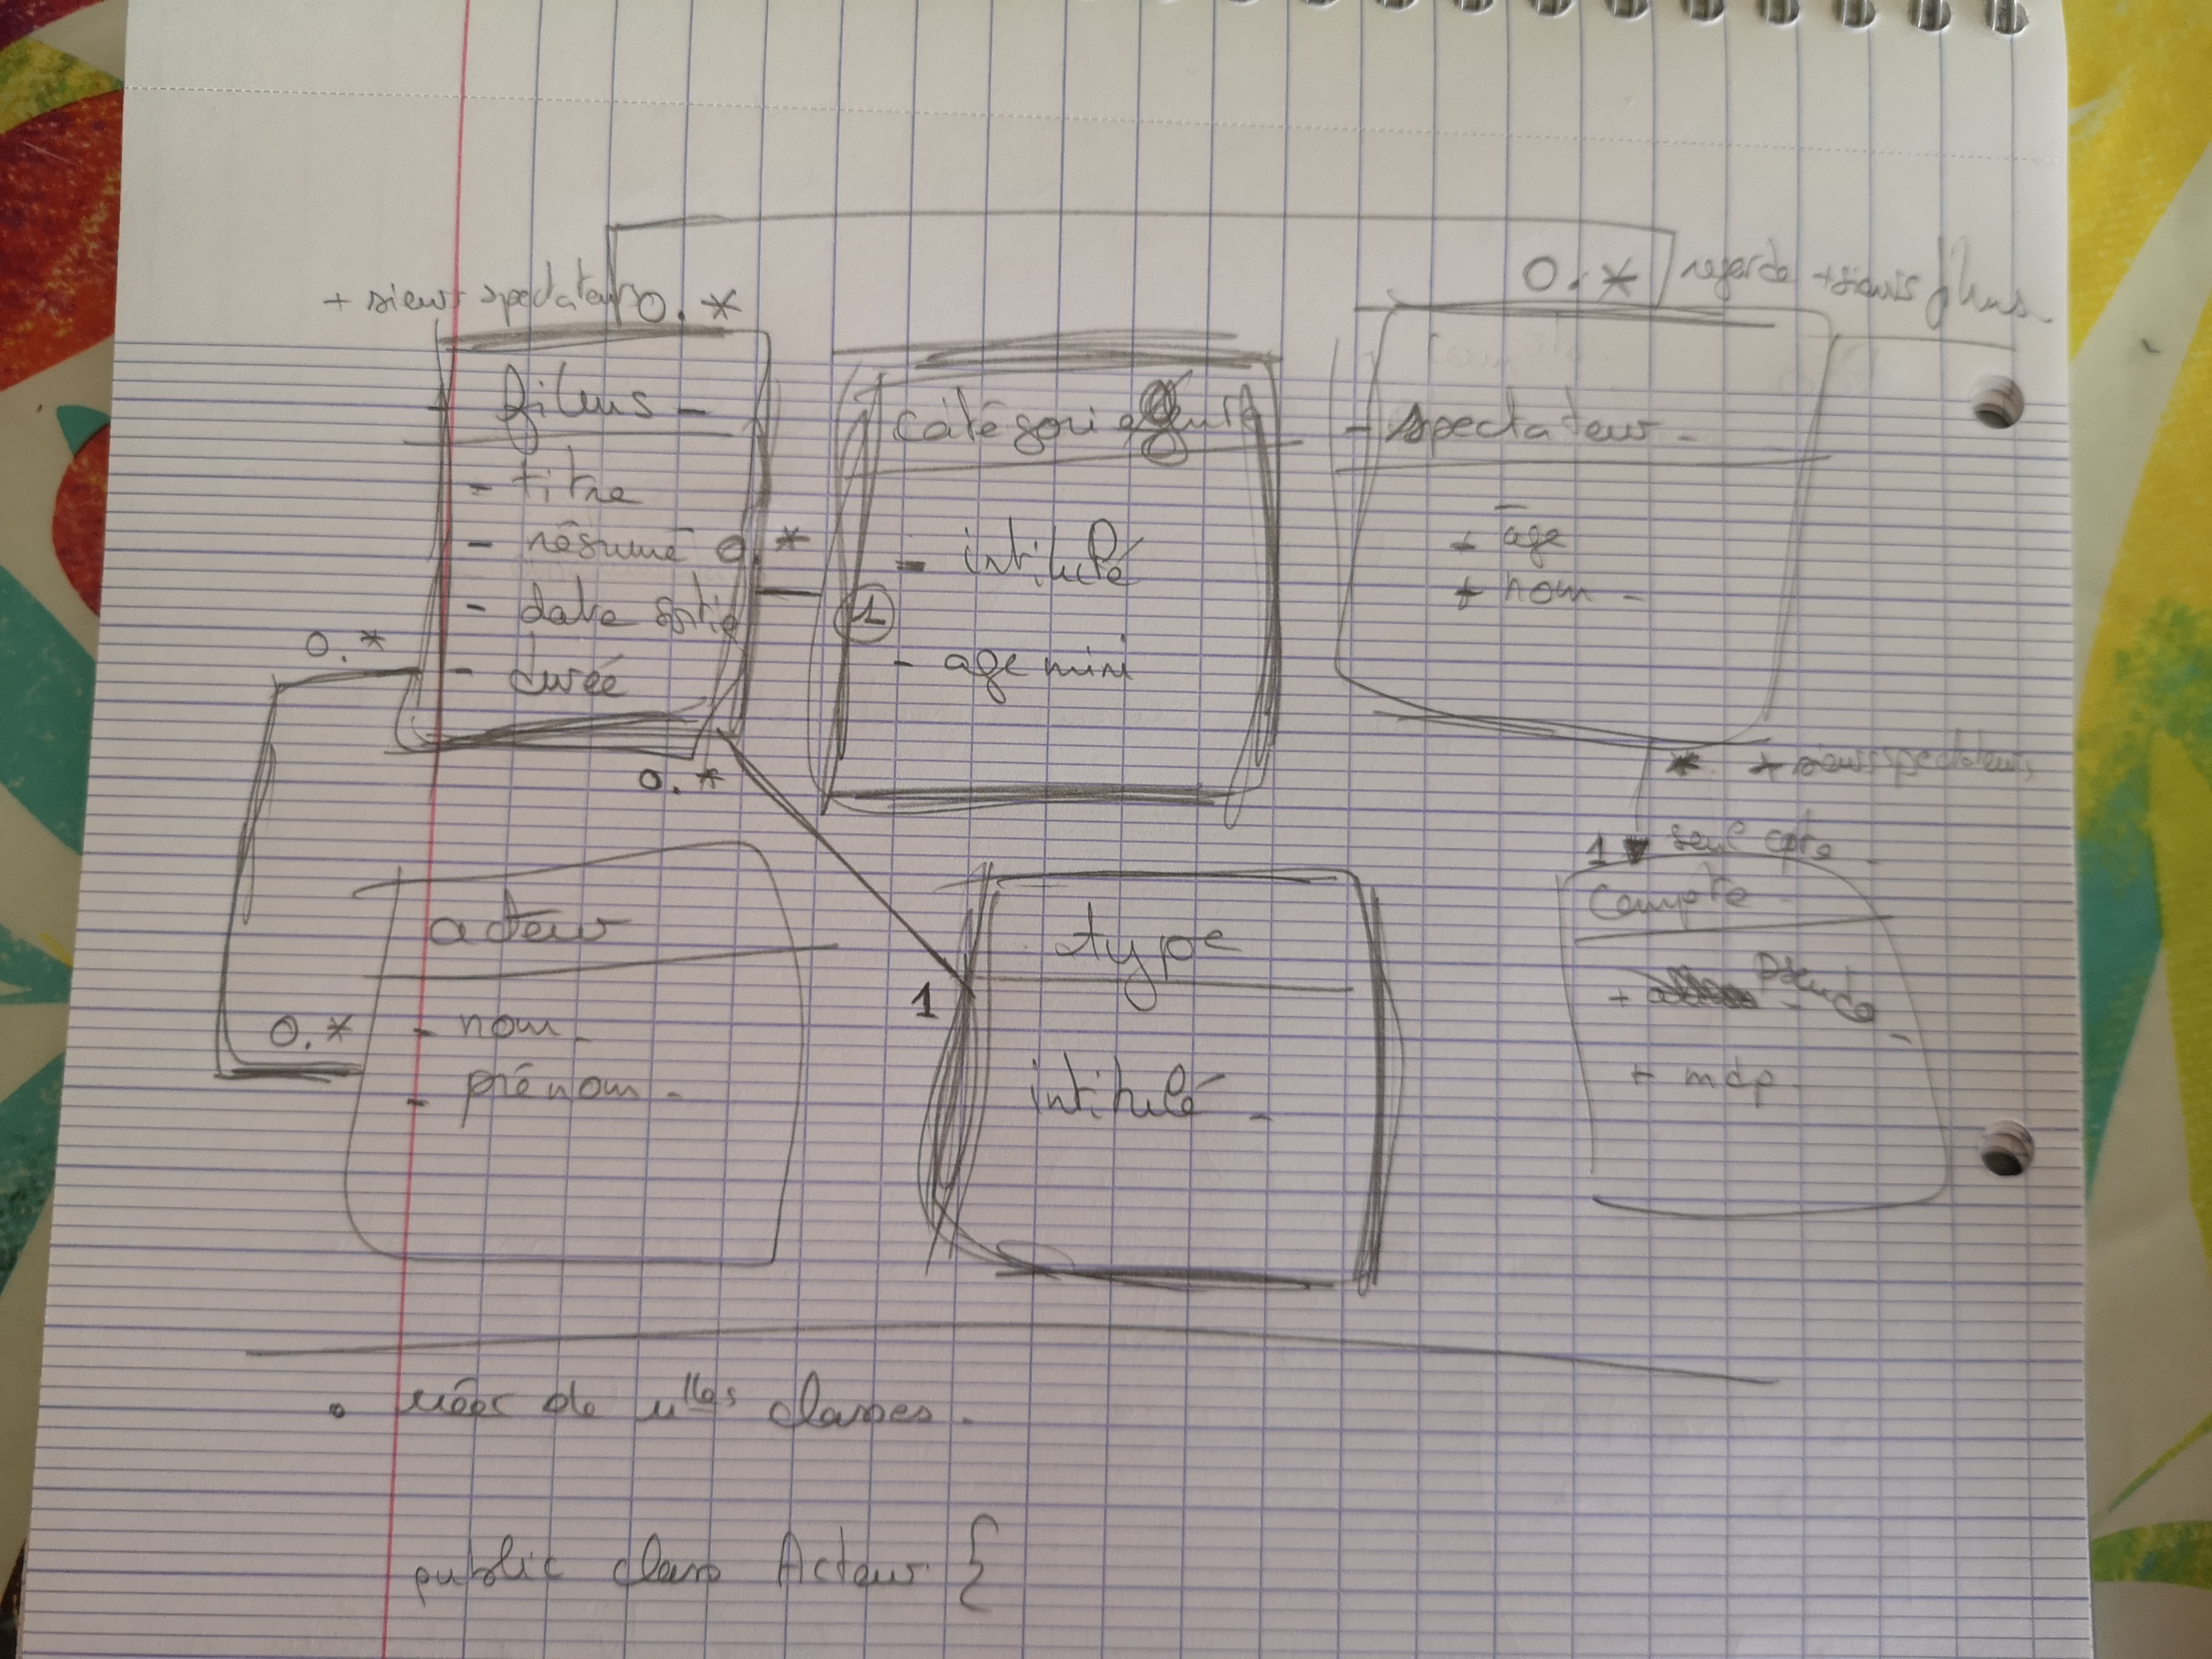 0.* regarde +sieurs films
+ sieurs spectateurs 0.*
films -
- titre
- résumé 0.*
- date sortie
- durée
0.*
0.*
catégorie
- intitulé
1
- age mini
- spectateur -
+ age
+ nom -
* + sieurs spectateurs
1 seul cpte
Compte
+ Pseudo -
+ mdp
acteur
- nom -
0.*
- prénom -
type
1
intitulé -
• de nlles classes.
public class Acteur {